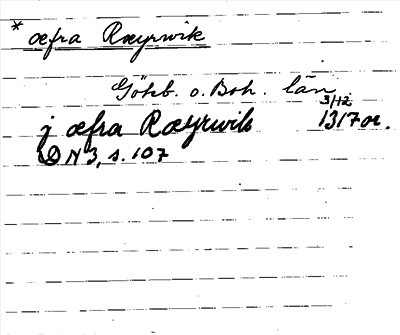 * æfra Ræyrwik
Göteb. o. Boh. län
j æfra Ræyrwik 3/12 1317 or.
DN 3, s. 107